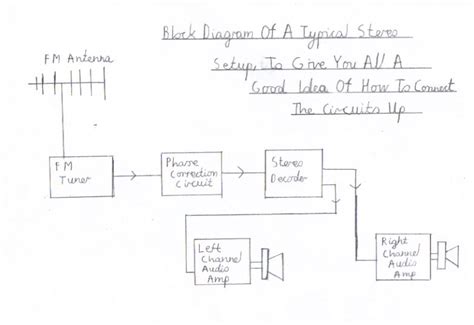 Block Diagram Of A Typical Stereo
Setup, To Give You All A
Good Idea Of How To Connect
The Circuits Up
FM Antenna
FM
Tuner
Phase
Correction
Circuit
Stereo
Decoder
Left
Channel
Audio
Amp
Right
Channel
Audio
Amp